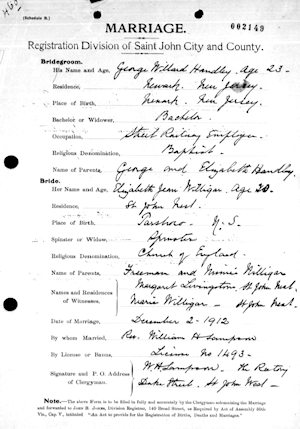 (Schedule B.)
002149
MARRIAGE.
Registration Division of Saint John City and County.
Bridegroom.
His Name and Age, George Willard Handley. Age 23 -
Residence, Newark. New Jersey.
Place of Birth, Newark. New Jersey.
Bachelor or Widower, Bachelor
Occupation, Street Railway Employee
Religious Denomination, Baptist
Name of Parents, George and Elizabeth Handley.
Bride.
Her Name and Age, Elizabeth Jean Willigar. Age 20.
Residence, St John West.
Place of Birth, N. S.
Spinster or Widow, Spinster
Religious Denomination, Church of England.
Name of Parents, Freeman and Minnie Willigar
Names and Residences of Witnesses, Margaret Livingstone, St John West.
Marie Willigar - St John West.
Date of Marriage, December 2 - 1912
By whom Married, Rev. William H Sampson
By License or Banns, License No 1493 -
Signature and P. O. Address of Clergyman. W H Sampson The Rectory
Duke Street. St John West -
NOTE.—The above Form is to be filled in fully and accurately by the Clergyman solemnizing the Marriage
and forwarded to JOHN B. JONES, Division Registrar, 140 Broad Street, as Required by Act of Assembly 50th
Vic., Cap. V, intituled "An Act to provide for the Registration of Births, Deaths and Marriages."